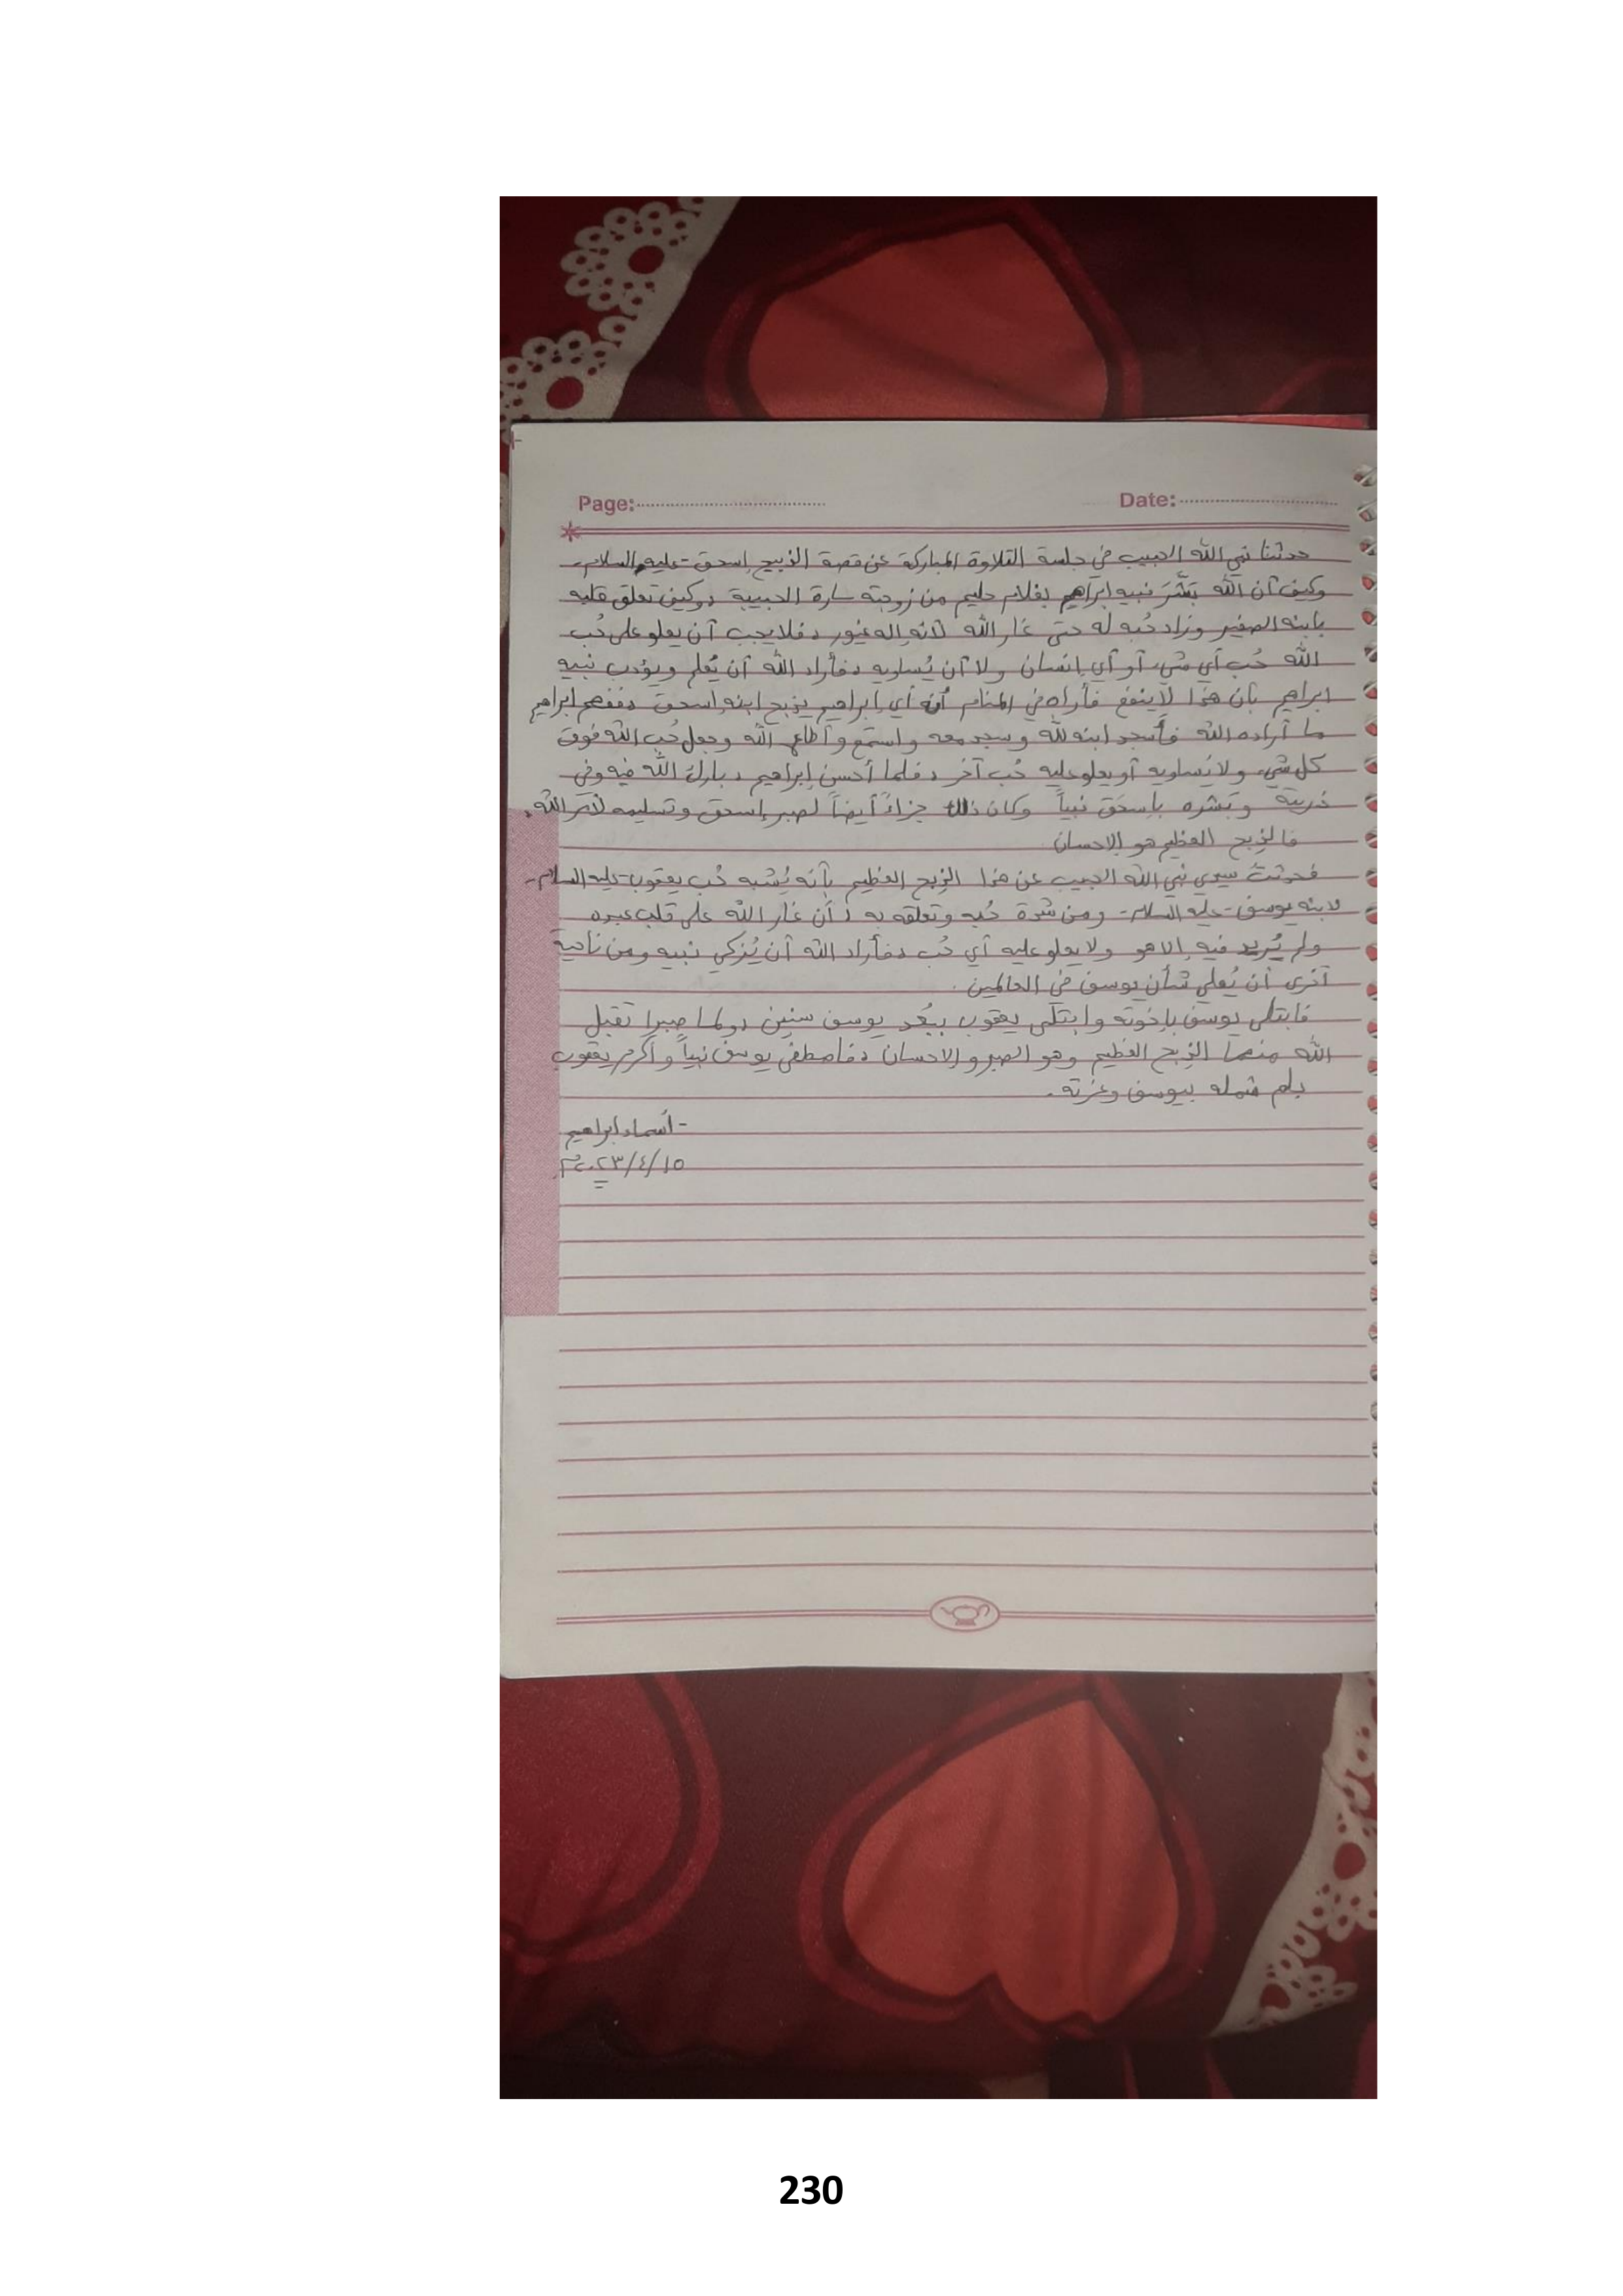 Page: Date:
حدثنا نبي الله الحبيب في جلسة التلاوة المباركة عن قصة الذبيح إسحق -عليه السلام-
وكيف أن الله بَشَّرَ نبيه ابراهيم بغلام حليم من زوجته سارة الحبيبة ، وكيف تعلق قلبه
بابنه الصغير وزاد حُبه له حتى غار الله لأنه إله غيور ، فلا يجب أن يعلو على حُب
الله حُب أي شيء أو أي إنسان ولا أن يُساويه ، فأراد الله أن يُعلم ويؤدب نبيه
ابراهيم بأن هذا لا ينفع فأراه في المنام أنه أي إبراهيم يذبح ابنه إسحق ، ففهم ابراهيم
ما أراده الله فأسجد ابنه لله وسجد معه واستمع وأطاع الله وجعل حُب الله فوق
كل شيء ولا يُساويه أو يعلو عليه حُب آخر ، فلما أحسن إبراهيم ، بارك الله فيه وفي
ذريته وبَشره بإسحَق نبياً وكان ذلك جزاءً أيضاً لصبر إسحق وتسليمه لأمر الله.
فالذِبح العظيم هو الإحسان
فحدثتُ سيدي نبي الله الحبيب عن هذا الذِبح العظيم بأنه يُشبه حُب يعقوب -عليه السلام-
لابنه يوسف -عليه السلام- ومن شدة حُبه وتعلقه به ، أن غار الله على قلب عبده
ولم يُريد فيه إلا هو ولا يعلو عليه أي حُب ، فأراد الله أن يُزكي نبيه ومن ناحية
آخرى أن يُعلي شأن يوسف في العالمين .
فابتلى يوسف بإخوته وابتلى يعقوب ببُعد يوسف سنين ، ولما صبرا تقبل
الله منهما الذِبح العظيم وهو الصبر والإحسان ، فاصطفى يوسف نبياً وأكرم يعقوب
بلم شمله بيوسف وعزته .
- أسماء ابراهيم
٢٠٢٣/٤/١٥م
230